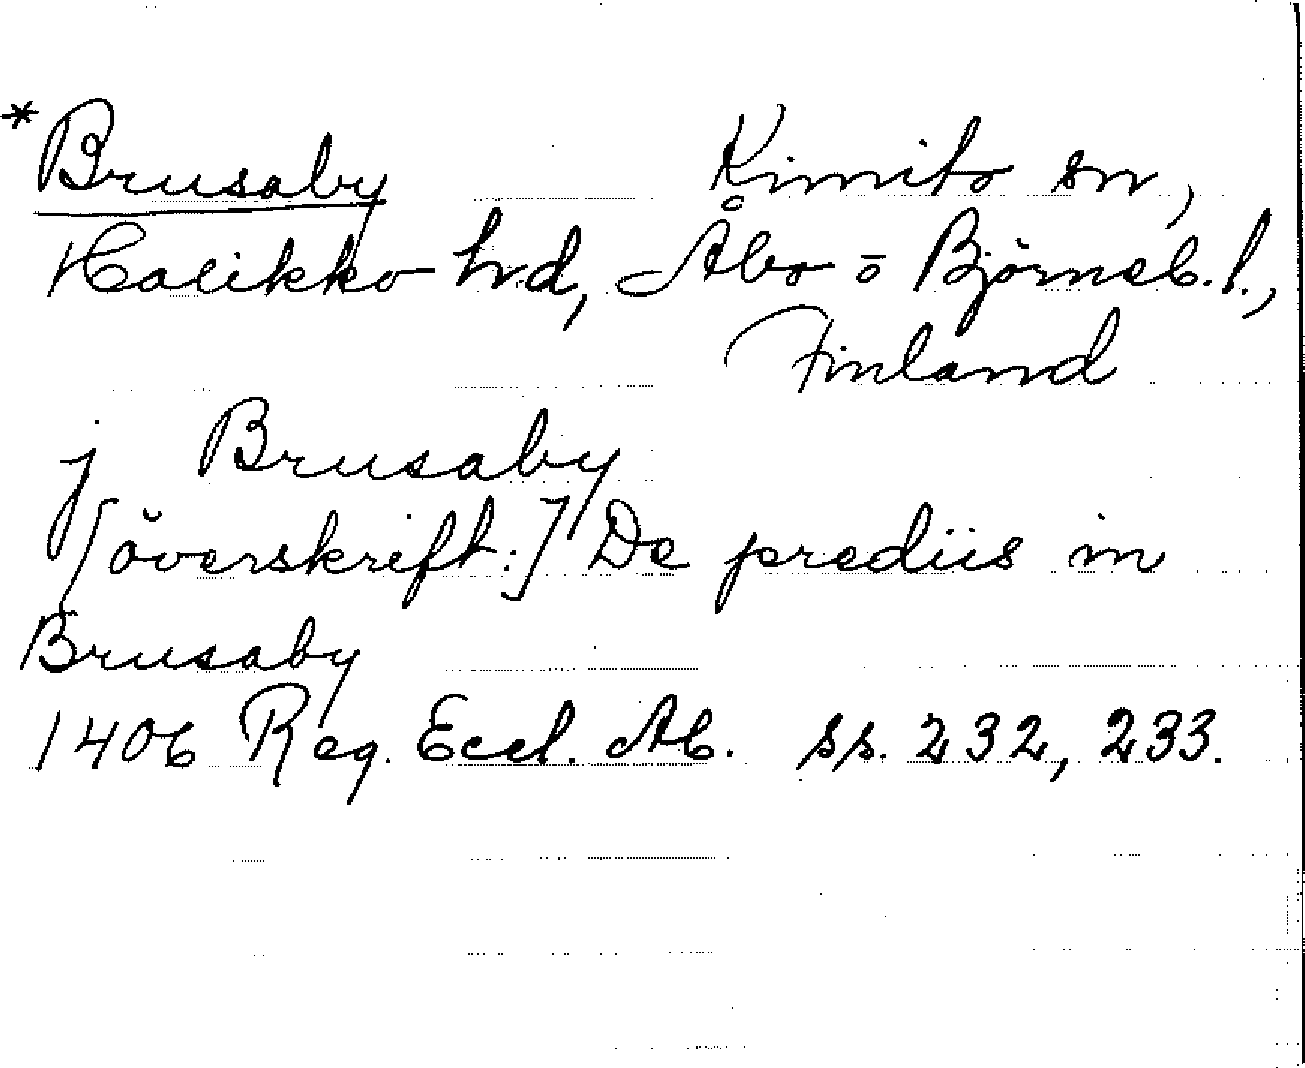 *Brusaby Kimito sn,
Halikko hd, Åbo o Björneb. l.,
Finland
j Brusaby
[överskrift:] De prediis in
Brusaby
1406 Reg. Eccl. Ab. ss. 232, 233.